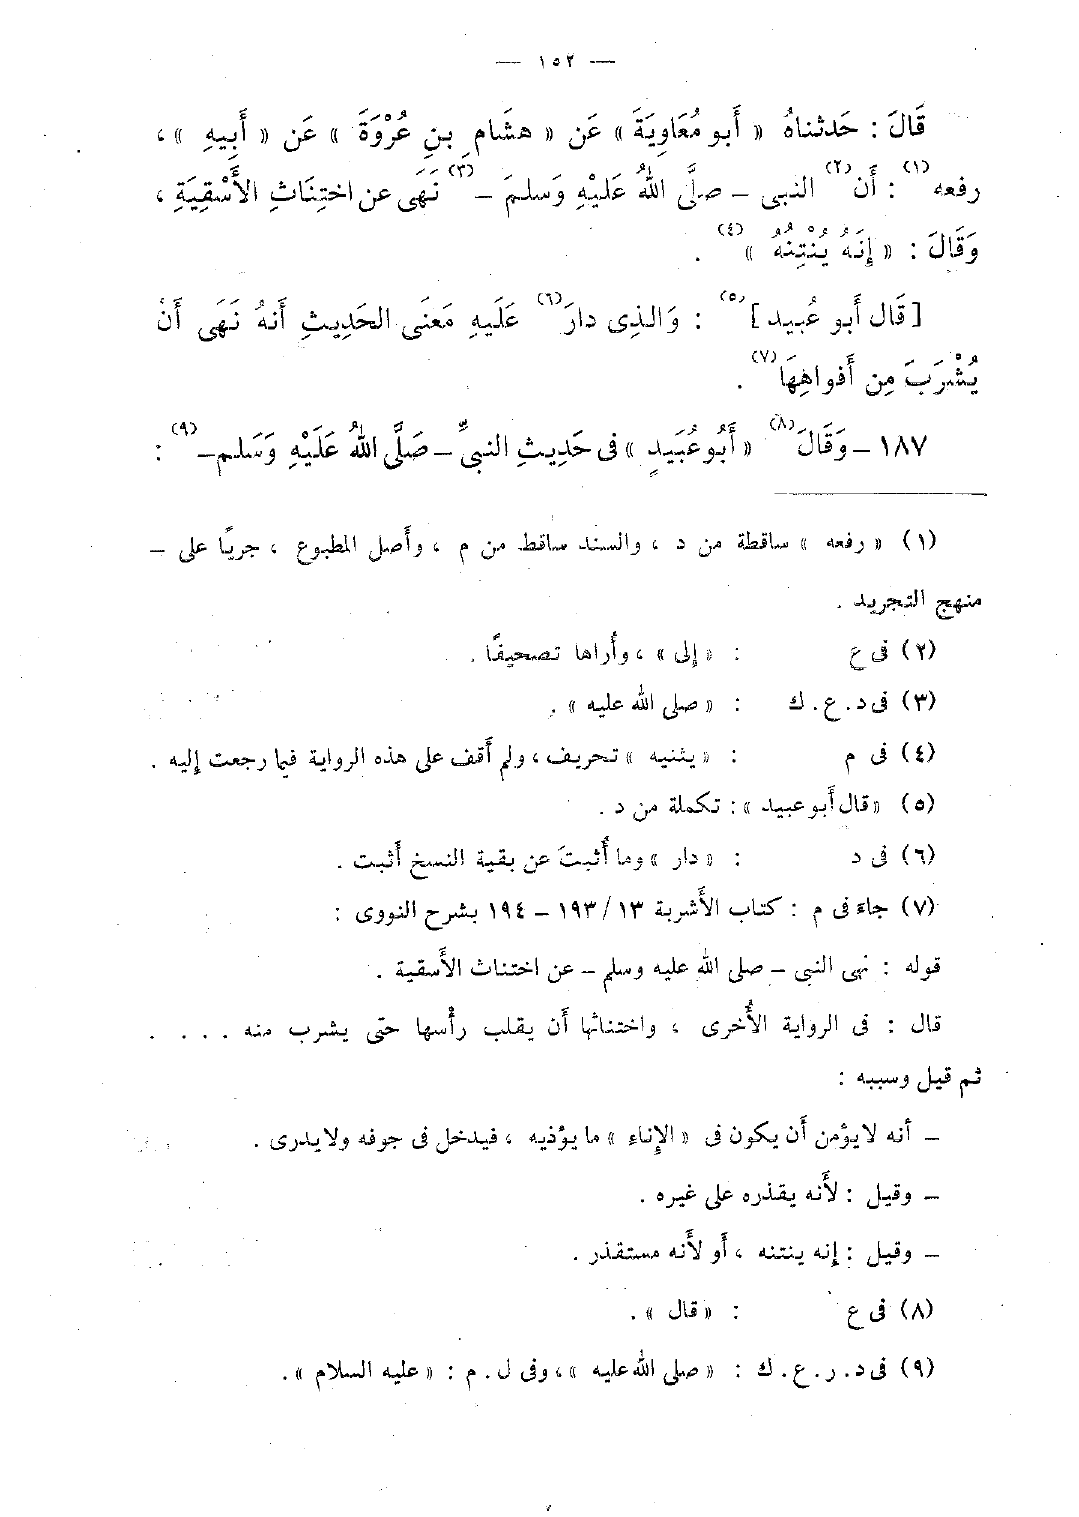 — ١٥٢ —
قَالَ : حَدثناهُ « أَبو مُعَاوِيَةَ » عَن « هشَام بنِ عُرْوَةَ » عَن « أَبِيهِ » ،
رفعه (١) : أَن (٢) النبى – صلَّى اللهُ عَلَيْهِ وَسلمَ – (٣) نَهَى عن اختِنَاثِ الأَسْقِيَةِ ،
وَقَالَ : « إِنَهُ يُنْتِنُهُ » (٤) .
[ قَال أَبو عُبيد ] (٥) : وَالذِى دارَ (٦) عَلَيهِ مَعنَى الحَدِيثِ أَنهُ نَهَى أَنْ
يُشْرَبَ مِن أَفواهِهَا (٧) .
١٨٧ – وَقَالَ (٨) « أَبُو عُبَيدٍ » فى حَدِيثِ النبىِّ – صَلَّى اللهُ عَلَيْهِ وَسَلم – (٩) :
(١) « رفعه » ساقطة من د ، والسند ساقط من م ، وأصل المطبوع ، جريًا على –
منهج التجريد .
(٢) فى ع : « إلى » ، وأُراها تصحيفًا .
(٣) فى د . ع . ك : « صلى الله عليه » .
(٤) فى م : « يثنيه » تحريف ، ولم أَقف على هذه الرواية فيما رجعت إليه .
(٥) « قال أَبو عبيد » : تكملة من د .
(٦) فى د : « دار » وما أُثبتَ عن بقية النسخ أَثبت .
(٧) جاءَ فى م : كتاب الأَشربة ١٣ / ١٩٣ – ١٩٤ بشرح النووى :
قوله : نهى النبى – صلى الله عليه وسلم – عن اختناث الأَسقية .
قال : فى الرواية الأُخرى ، واختناثها أَن يقلب رأْسها حتى يشرب منه . . . .
ثم قيل وسببه :
– أَنه لا يؤمن أَن يكون فى « الإِناء » ما يؤذيه ، فيدخل فى جوفه ولا يدرى .
– وقيل : لأَنه يقذره على غيره .
– وقيل : إنه ينتنه ، أَو لأَنه مستقذر .
(٨) فى ع : « قال » .
(٩) فى د . ر . ع . ك : « صلى الله عليه » ، وفى ل . م : « عليه السلام » .